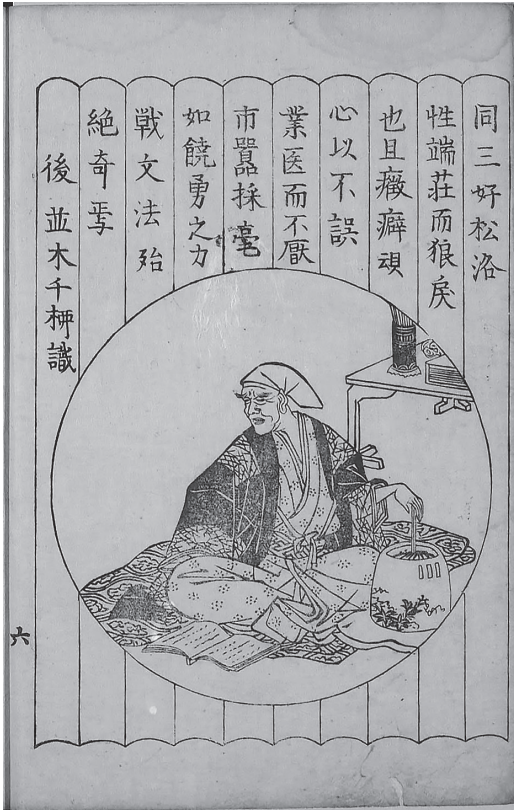 同三好松洛
性端荘而狼戻
也且癥癖頑
心以不誤
業医而不厭
市囂採毫
如饒勇之力
戦文法殆
絶奇焉
後並木千柳識
六